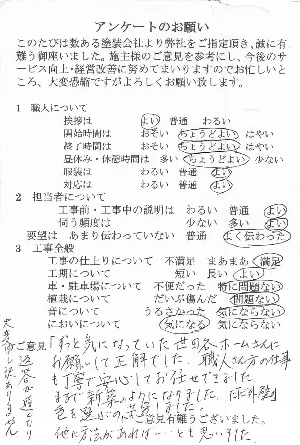 アンケートのお願い
このたびは数ある塗装会社より弊社をご指定頂き、誠に有
難う御座いました。施主様のご意見を参考にし、今後のサ
ービス向上・経営改善に努めてまいりますのでお忙しいと
ころ、大変恐縮ですがよろしくお願い致します。
1 職人について
挨拶は よい 普通 わるい
開始時間は おそい ちょうどよい はやい
終了時間は おそい ちょうどよい はやい
昼休み・休憩時間は 多い ちょうどよい 少ない
服装は わるい 普通 よい
対応は わるい 普通 よい
2 担当者について
工事前・工事中の説明は わるい 普通 よい
伺う頻度は 少ない 多い よい
要望は あまり伝わっていない 普通 よく伝わった
3 工事全般
工事の仕上りについて 不満足 まあまあ 満足
工期について 短い 長い よい
車・駐車場について 不便だった 特に問題ない
植栽について だいぶ傷んだ 問題ない
音について うるさかった 気にならない
においについて 気になる 気にならない
ご意見 ずっと気になっていた世田谷ホームさんに
お願いして正解でした。職人さん方の仕事
も丁寧で安心してお任せできました。
まで新築のようになりました。ただ外壁
色を選ぶのに苦労しました。
ご意見有難うございました。
他に方法があれば…とも思いました。
返答が遅くなり
大変申し訳ありません